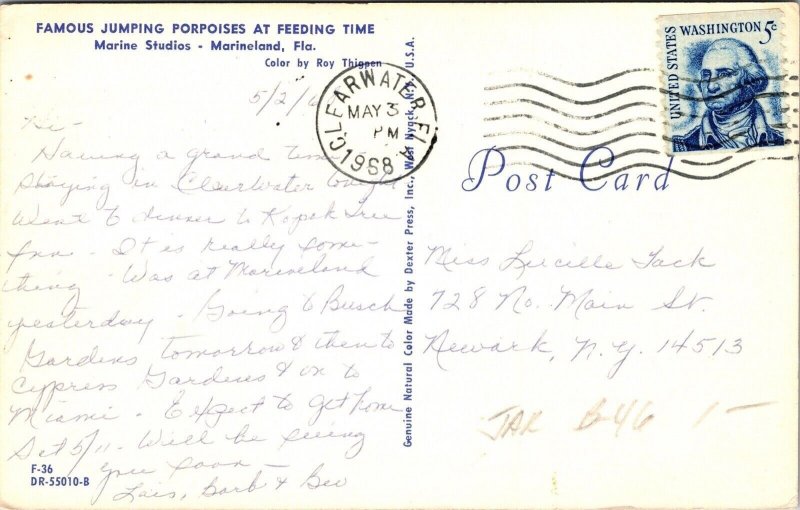 FAMOUS JUMPING PORPOISES AT FEEDING TIME
Marine Studios - Marineland, Fla.
Color by Roy Thigpen
5/2/6
Hi -
Having a grand time
Staying in Clearwater tonight
Went to dinner to Kapok Tree
Inn - It is really some-
thing - Was at Marineland
yesterday - Going to Busch
Gardens tomorrow & then to
Cypress Gardens & on to
Miami - Expect to get home
Sat 5/11 - Will be seeing
you soon -
Lois, Barb & Bev
F-36
DR-55010-B
Genuine Natural Color Made by Dexter Press, Inc., West Nyack, N.Y., U.S.A.
CLEARWATER, FLA
MAY 3
PM
1968
UNITED STATES
WASHINGTON 5c
Post Card
Miss Lucille Tack
728 No. Main St.
Newark, N.Y. 14513
JAR B-46 1-